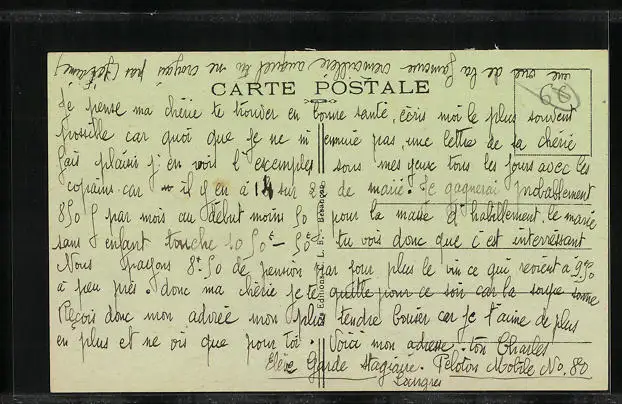 une vue de la fameuse crémaillère auquel tu ne croyais pas (Jehanne)
CARTE POSTALE
68
Je pense ma chérie te trouver en bonne santé, écris moi le plus souvent
possible car quoi que je ne m'ennuie pas, une lettre de sa chérie
fait plaisir j'en vois l'exemple sous mes yeux tous les jours avec les
copains car il y en à sur 20 de marié. Je gagnerai probablement
850 f par mois au début moins 50 pour la masse d'habillement. le marié
sans enfant touche tu vois donc que c'est interressant
Nous payons 8f.50 de pension par jour plus le vin ce qui revient à 9f50
à peu près. donc ma chérie je te quitte pour ce soir car la soupe sonne
Reçois donc mon adorée mon plus tendre baiser car je t'aime de plus
en plus et ne vis que pour toi. Voici mon adresse. ton Charles
Elève Garde Stagiaire. Peloton Mobile No. 80
Langres
Les Editions C. L. B. Besançon